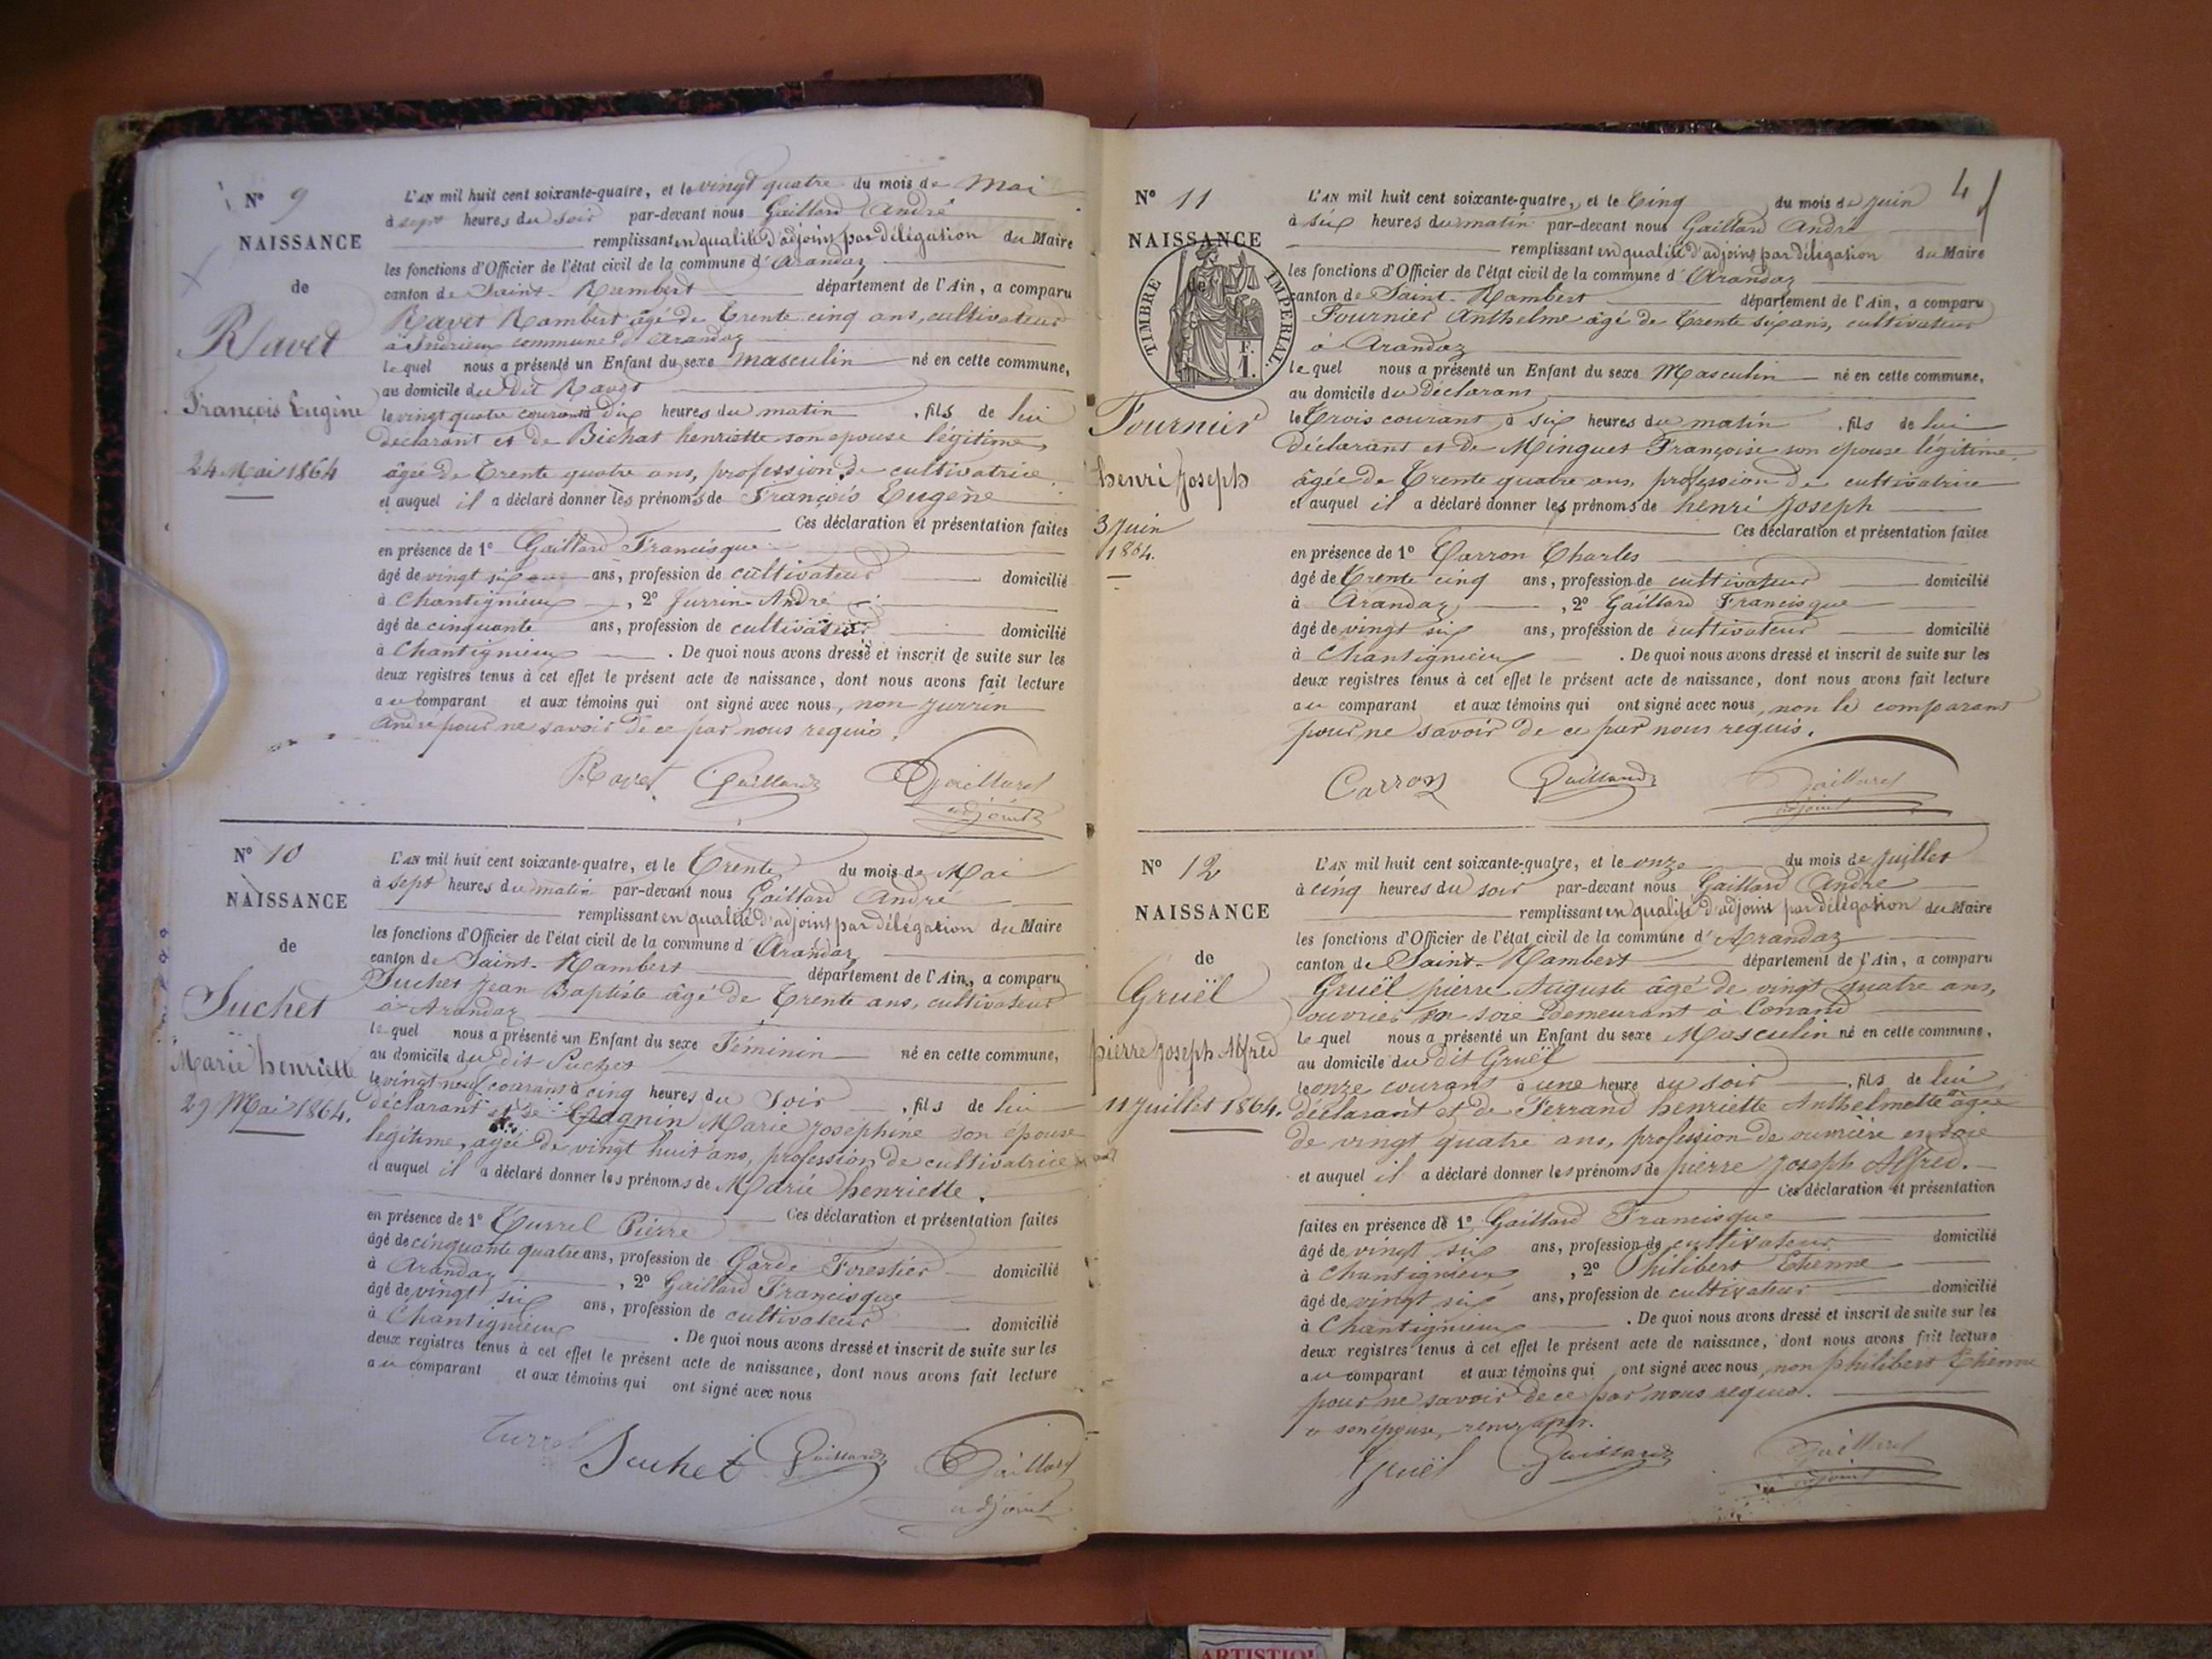 N° 9
NAISSANCE
de
Ravet
François Eugène
24 Mai 1864
L'AN mil huit cent soixante-quatre, et le vingt quatre du mois de Mai
à sept heures du soir par-devant nous Gaillard André
remplissant en qualité d'adjoint par délégation du Maire
les fonctions d'Officier de l'état civil de la commune d'Arandaz
canton de Saint-Rambert département de l'Ain, a comparu
Ravet Rambert âgé de trente cinq ans, cultivateur
à Indrieux commune d'Arandaz
lequel nous a présenté un Enfant du sexe masculin né en cette commune,
au domicile du dit Ravet
le vingt quatre courant à dix heures du matin, fils de lui
déclarant et de Bichat henriette son épouse légitime,
âgée de trente quatre ans, profession de cultivatrice
et auquel il a déclaré donner les prénoms de François Eugène
Ces déclaration et présentation faites
en présence de 1° Gaillard Francisque
âgé de vingt six ans, profession de cultivateur domicilié
à Chantignieux, 2° Jurrin André
âgé de cinquante ans, profession de cultivateur domicilié
à Chantignieux. De quoi nous avons dressé et inscrit de suite sur les
deux registres tenus à cet effet le présent acte de naissance, dont nous avons fait lecture
au comparant et aux témoins qui ont signé avec nous, non Jurrin
André pour ne savoir de ce par nous requis.
Ravet Gaillard Gaillard
adjoint
N° 10
NAISSANCE
de
Suchet
Marie henriette
29 Mai 1864.
L'AN mil huit cent soixante-quatre, et le trente du mois de Mai
à sept heures du matin par-devant nous Gaillard André
remplissant en qualité d'adjoint par délégation du Maire
les fonctions d'Officier de l'état civil de la commune d'Arandaz
canton de Saint-Rambert département de l'Ain, a comparu
Suchet Jean Baptiste âgé de trente ans, cultivateur
à Arandaz
lequel nous a présenté un Enfant du sexe Féminin né en cette commune,
au domicile du dit Suchet
le vingt neuf courant à cinq heures du soir, fils de lui
déclarant et de Gagnin Marie Josephine son épouse
légitime, âgée de vingt huit ans, profession de cultivatrice
et auquel il a déclaré donner les prénoms de Marie henriette.
Ces déclaration et présentation faites
en présence de 1° Turrel Pierre
âgé de cinquante quatre ans, profession de Garde Forestier domicilié
à Arandaz, 2° Gaillard Francisque
âgé de vingt six ans, profession de cultivateur domicilié
à Chantignieux. De quoi nous avons dressé et inscrit de suite sur les
deux registres tenus à cet effet le présent acte de naissance, dont nous avons fait lecture
au comparant et aux témoins qui ont signé avec nous
Turrel Suchet Gaillard Gaillard
adjoint
4
N° 11
NAISSANCE
de
TIMBRE IMPERIAL
F.
1.
Fournier
henri Joseph
3 Juin
1864.
L'AN mil huit cent soixante-quatre, et le Cinq du mois de juin
à six heures du matin par-devant nous Gaillard André
remplissant en qualité d'adjoint par délégation du Maire
les fonctions d'Officier de l'état civil de la commune d'Arandaz
canton de Saint-Rambert département de l'Ain, a comparu
Fournier Anthelme âgé de trente six ans, cultivateur
à Arandaz
lequel nous a présenté un Enfant du sexe Masculin né en cette commune,
au domicile du déclarant
le trois courant à six heures du matin, fils de lui
déclarant et de Minguet Françoise son épouse légitime,
âgée de trente quatre ans, profession de cultivatrice
et auquel il a déclaré donner les prénoms de henri Joseph
Ces déclaration et présentation faites
en présence de 1° Carron Charles
âgé de trente cinq ans, profession de cultivateur domicilié
à Arandaz, 2° Gaillard Francisque
âgé de vingt six ans, profession de cultivateur domicilié
à Chantignieux. De quoi nous avons dressé et inscrit de suite sur les
deux registres tenus à cet effet le présent acte de naissance, dont nous avons fait lecture
au comparant et aux témoins qui ont signé avec nous, non le comparant
pour ne savoir de ce par nous requis.
Carron Gaillard Gaillard
adjoint
N° 12
NAISSANCE
de
Gruël
pierre Joseph Alfred
11 juillet 1864.
L'AN mil huit cent soixante-quatre, et le onze du mois de juillet
à cinq heures du soir par-devant nous Gaillard André
remplissant en qualité d'adjoint par délégation du Maire
les fonctions d'Officier de l'état civil de la commune d'Arandaz
canton de Saint-Rambert département de l'Ain, a comparu
Gruël pierre Auguste âgé de vingt quatre ans,
ouvrier en soie demeurant à Conand
lequel nous a présenté un Enfant du sexe Masculin né en cette commune,
au domicile du dit Gruël
le onze courant à une heure du soir, fils de lui
déclarant et de Ferrand henriette Anthelmette âgée
de vingt quatre ans, profession de ouvrière en soie
et auquel il a déclaré donner les prénoms de pierre Joseph Alfred.
Ces déclaration et présentation
faites en présence de 1° Gaillard Francisque
âgé de vingt six ans, profession de cultivateur domicilié
à Chantignieux, 2° Philibert Etienne
âgé de vingt six ans, profession de cultivateur domicilié
à Chantignieux. De quoi nous avons dressé et inscrit de suite sur les
deux registres tenus à cet effet le présent acte de naissance, dont nous avons fait lecture
au comparant et aux témoins qui ont signé avec nous, non philibert Etienne
pour ne savoir de ce par nous requis.
son épouse, renv. appr.
Gruël Gaillard Gaillard
adjoint